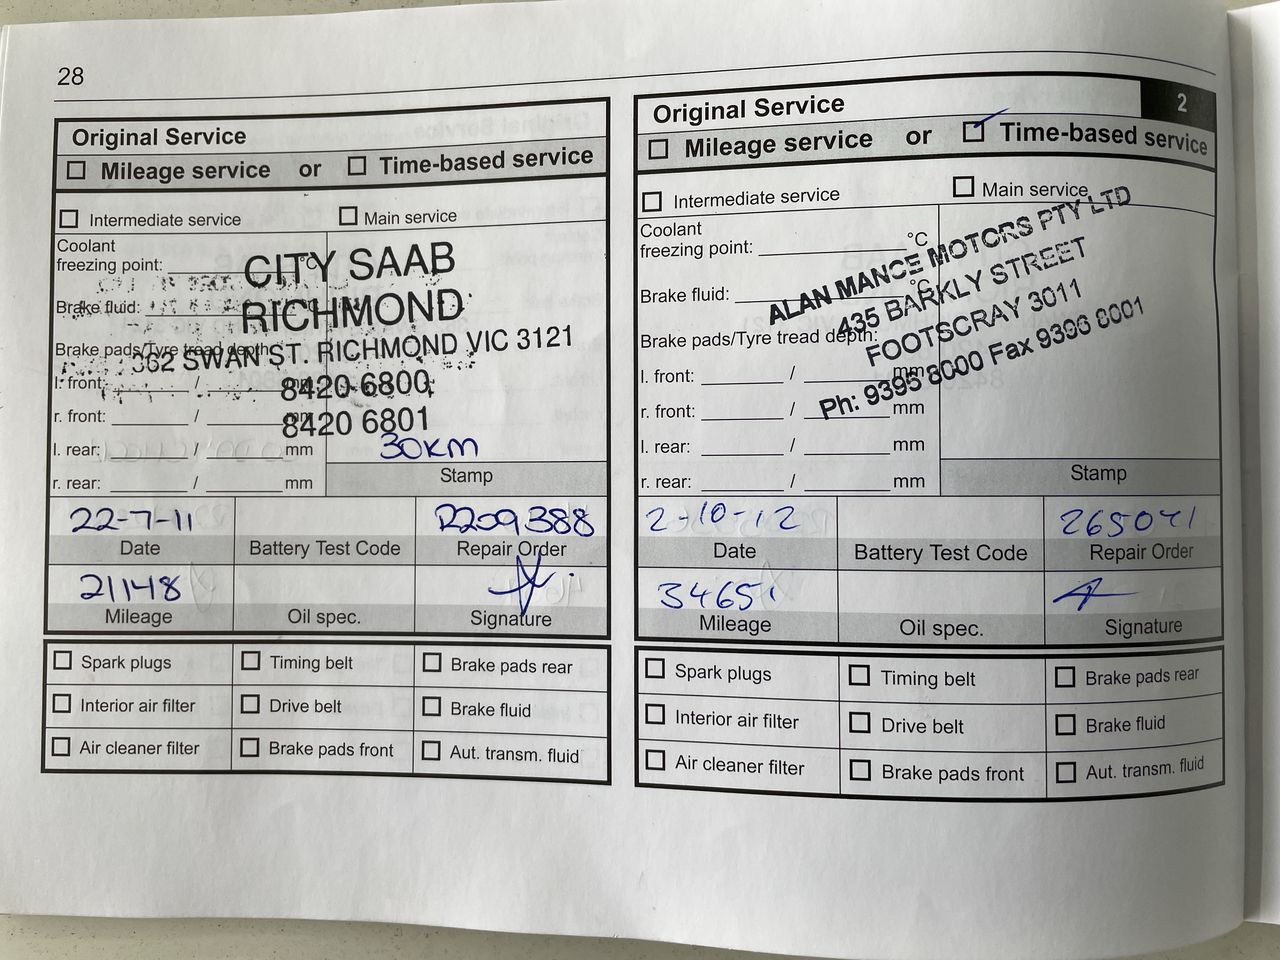 28
Original Service
Mileage service or Time-based service
Intermediate service Main service
Coolant
freezing point: °C
Brake fluid:
Brake pads/Tyre tread depth:
l. front: /
r. front: / mm
l. rear: / mm
r. rear: / mm
CITY SAAB
RICHMOND
362 SWAN ST. RICHMOND VIC 3121
8420 6800
8420 6801
30KM
Stamp
22-7-11 R209388
Date Battery Test Code Repair Order
21148
Mileage Oil spec. Signature
Spark plugs Timing belt Brake pads rear
Interior air filter Drive belt Brake fluid
Air cleaner filter Brake pads front Aut. transm. fluid
2
Original Service
Mileage service or Time-based service
Intermediate service Main service
Coolant
freezing point: °C
Brake fluid: °C
Brake pads/Tyre tread depth:
l. front: / mm
r. front: / mm
l. rear: / mm
r. rear: / mm
ALAN MANCE MOTORS PTY LTD
435 BARKLY STREET
FOOTSCRAY 3011
Ph: 9395 8000 Fax 9396 8001
Stamp
2-10-12 265041
Date Battery Test Code Repair Order
34651
Mileage Oil spec. Signature
Spark plugs Timing belt Brake pads rear
Interior air filter Drive belt Brake fluid
Air cleaner filter Brake pads front Aut. transm. fluid